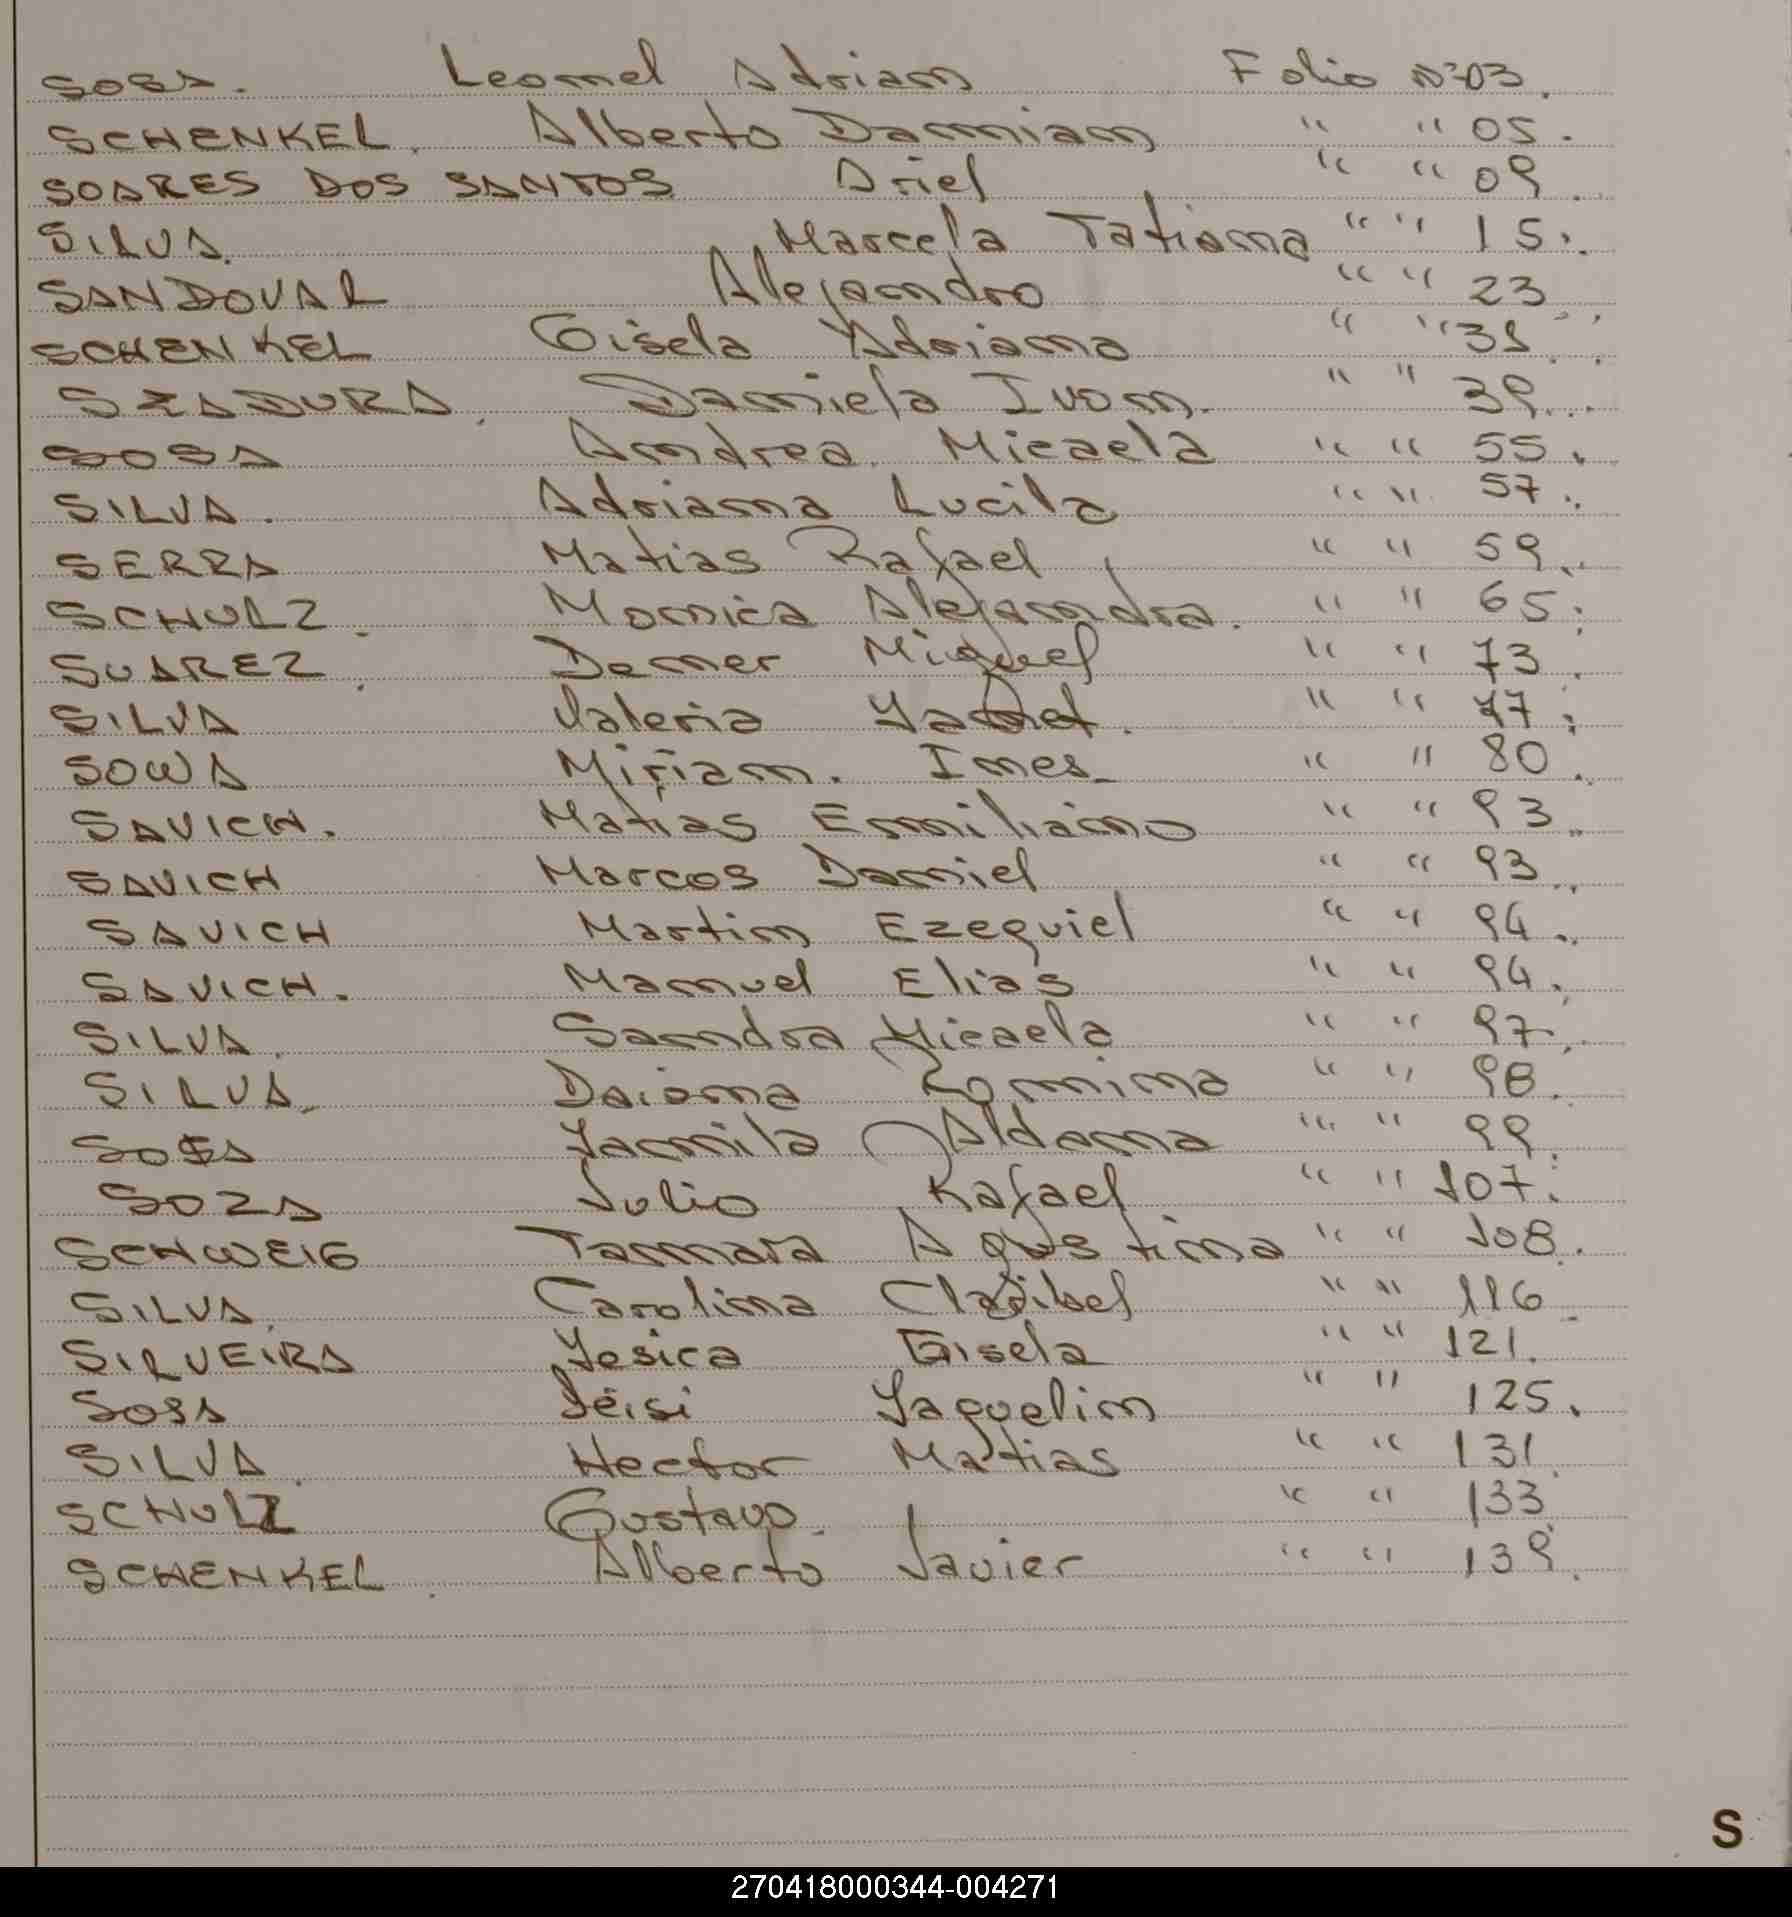 SOSA. Leonel Adrian Folio Nº 03.
SCHENKEL. Alberto Damian " " 05.
SOARES DOS SANTOS Ariel " " 09.
SILVA. Marcela Tatiana " " 15.
SANDOVAL Alejandro " " 23
SCHENKEL Gisela Adriana " "
SZADURA. Daniela Ivon. " " 39.
SOSA Andrea Micaela " " 55.
SILVA. Adriana Lucila " " 57.
SERRA Matias Rafael " " 59.
SCHULZ. Monica Alejandra. " " 65.
SUAREZ. Demer Miguel " " 73.
SILVA Valeria " " 77.
SOWA Miriam. Ines " " 80.
SAVICH. Matias Emiliano " " 93.
SAVICH Marcos Daniel " " 93.
SAVICH Martin Ezequiel " " 94.
SAVICH. Manuel Elias " " 94.
SILVA. Sandra Micaela " " 97.
SILVA. Daiana Romina " " 98.
SOSA Yamila Aldana " " 99.
SOZA Julio Rafael " " 107.
SCHWEIG Tamara Agustina " " 108.
SILVA. Carolina Claribel " " 116
SILVEIRA Yesica Gisela " " 121.
SOSA Deisi Yaquelin " " 125.
SILVA. Hector Matias " " 131.
SCHULZ Gustavo. " " 133
SCHENKEL. Alberto Javier " " 139.
S
270418000344-004271